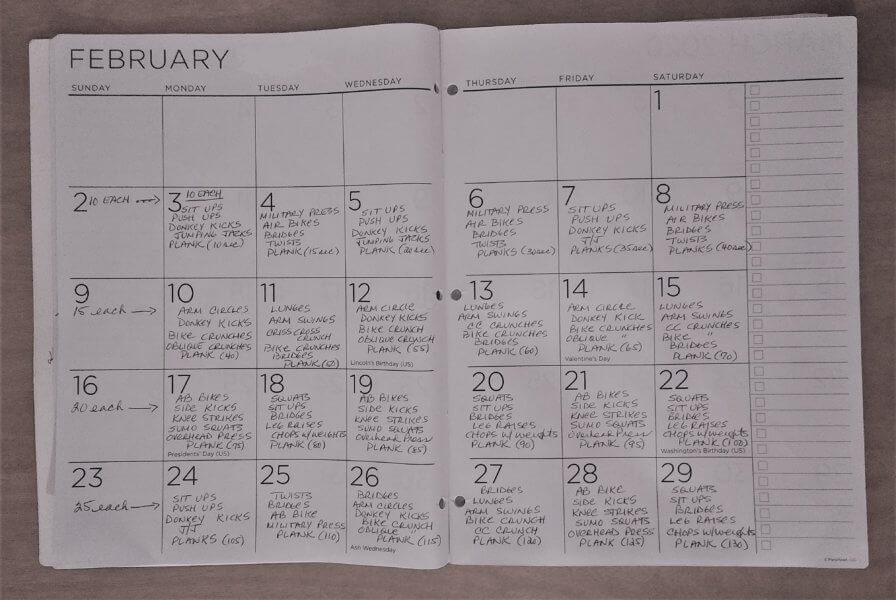 FEBRUARY
SUNDAY MONDAY TUESDAY WEDNESDAY THURSDAY FRIDAY SATURDAY
1
2 10 EACH
3 10 EACH
SIT UPS
PUSH UPS
DONKEY KICKS
JUMPING JACKS
PLANK (10 sec)
4
MILITARY PRESS
AIR BIKES
BRIDGES
TWISTS
PLANK (15 sec)
5
SIT UPS
PUSH UPS
DONKEY KICKS
JUMPING JACKS
PLANK (20 sec)
6
MILITARY PRESS
AIR BIKES
BRIDGES
TWISTS
PLANKS (30 sec)
7
SIT UPS
PUSH UPS
DONKEY KICKS
J/J
PLANKS (35 sec)
8
MILITARY PRESS
AIR BIKES
BRIDGES
TWISTS
PLANKS (40 sec)
9
15 each
10
ARM CIRCLES
DONKEY KICKS
BIKE CRUNCHES
OBLIQUE CRUNCHES
PLANK (40)
11
LUNGES
ARM SWINGS
CRISS CROSS
CRUNCH
BIKE CRUNCHES
BRIDGES
PLANK (50)
12
ARM CIRCLE
DONKEY KICKS
BIKE CRUNCH
OBLIQUE CRUNCH
PLANK (55)
Lincoln's Birthday (US)
13
LUNGES
ARM SWINGS
CC CRUNCHES
BIKE CRUNCHES
BRIDGES
PLANK (60)
14
ARM CIRCLE
DONKEY KICK
BIKE CRUNCHES
OBLIQUE "
PLANK (65)
Valentine's Day
15
LUNGES
ARM SWINGS
CC CRUNCHES
BIKE "
BRIDGES
PLANK (70)
16
20 each
17
AB BIKES
SIDE KICKS
KNEE STRIKES
SUMO SQUATS
OVERHEAD PRESS
PLANK (75)
Presidents' Day (US)
18
SQUATS
SIT UPS
BRIDGES
LEG RAISES
CHOPS W/WEIGHTS
PLANK (80)
19
AB BIKES
SIDE KICKS
KNEE STRIKES
SUMO SQUATS
Overhead Press
PLANK (85)
20
SQUATS
SIT UPS
BRIDGES
LEG RAISES
CHOPS W/weights
PLANK (90)
21
AB BIKES
SIDE KICKS
KNEE STRIKES
SUMO SQUATS
Overhead Press
PLANK (95)
22
SQUATS
SIT UPS
BRIDGES
LEG RAISES
CHOPS W/weights
PLANK (100)
Washington's Birthday (US)
23
25 each
24
SIT UPS
PUSH UPS
DONKEY KICKS
J/J
PLANKS (105)
25
TWISTS
BRIDGES
AB BIKE
MILITARY PRESS
PLANK (110)
26
BRIDGES
ARM CIRCLES
DONKEY KICKS
BIKE CRUNCH
OBLIQUE "
PLANK (115)
Ash Wednesday
27
BRIDGES
LUNGES
ARM SWINGS
BIKE CRUNCH
CC CRUNCH
PLANK (120)
28
AB BIKE
SIDE KICKS
KNEE STRIKES
SUMO SQUATS
OVERHEAD PRESS
PLANK (125)
29
SQUATS
SIT UPS
BRIDGES
LEG RAISES
CHOPS W/weights
PLANK (130)